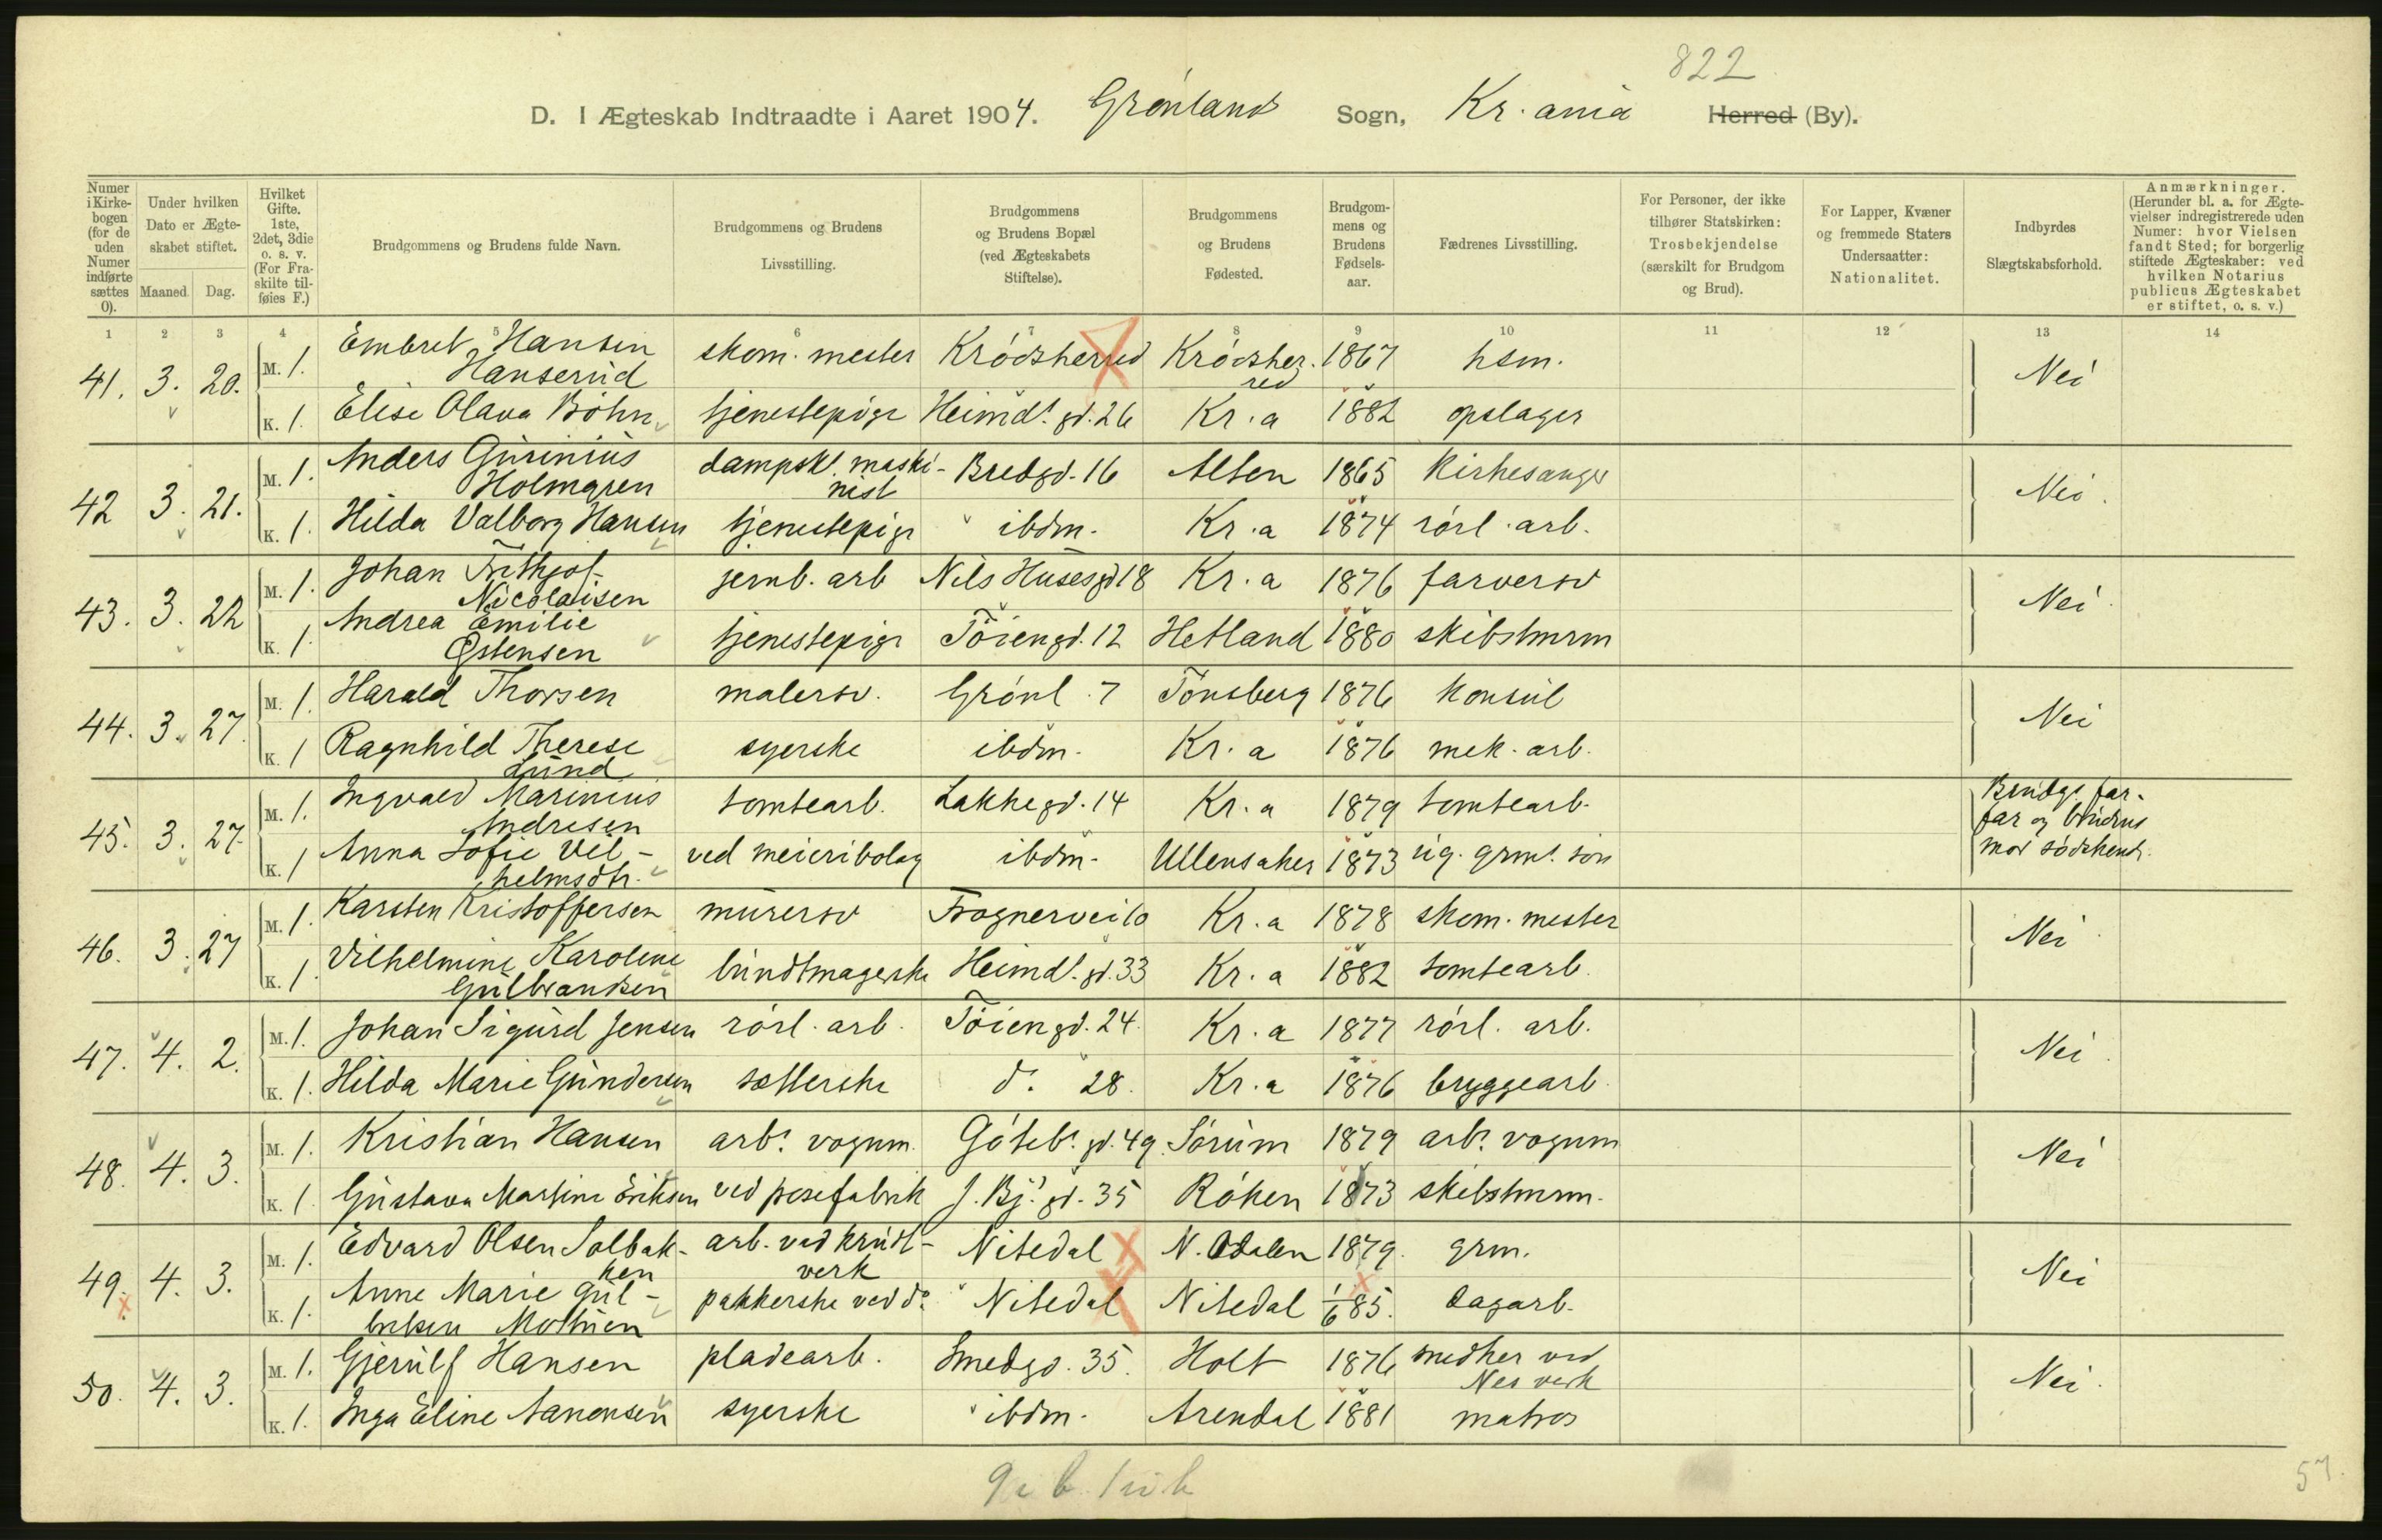 822
D. I Ægteskab Indtraadte i Aaret 1904. Grønland Sogn, Kr.ania Herred (By).
Numer i Kirkebogen (for de uden Numer indførte sættes 0).
Under hvilken Dato er Ægteskabet stiftet.
Maaned. Dag.
Hvilket Gifte. 1ste, 2det, 3die o. s. v. (For Fraskilte tilføies F.)
Brudgommens og Brudens fulde Navn.
Brudgommens og Brudens Livsstilling.
Brudgommens og Brudens Bopæl (ved Ægteskabets Stiftelse).
Brudgommens og Brudens Fødested.
Brudgommens og Brudens Fødselsaar.
Fædrenes Livsstilling.
For Personer, der ikke tilhører Statskirken: Trosbekjendelse (særskilt for Brudgom og Brud).
For Lapper, Kvæner og fremmede Staters Undersaatter: Nationalitet.
Indbyrdes Slægtskabsforhold.
Anmærkninger. (Herunder bl. a. for Ægtevielser indregistrerede uden Numer: hvor Vielsen fandt Sted; for borgerlig stiftede Ægteskaber: ved hvilken Notarius publicus Ægteskabet er stiftet, o. s. v.)
1 2 3 4 5 6 7 8 9 10 11 12 13 14
41. 3. 20. M. 1. Embret Hansen Hanserud skom. mester Krødsherred Krødsherred 1867 hsm. Nei
K. 1. Elise Olava Bøhn tjenestepige Heimdl. gd. 26 Kr.a 1882 opslager
42 3. 21. M. 1. Anders Gurinius Holmgren dampsk. maskinist Bredgd. 16 Alten 1865 Kirkesanger Nei.
K. 1. Hilda Valborg Hansen tjenestepige ibdm. Kr.a 1874 rørl. arb.
43. 3. 22 M. 1. Johan Frithjof Nicolaisen jernb. arb Nils Husesgd 18 Kr.a 1876 farversv Nei.
K. 1. Andrea Emilie Østensen tjenestepige Tøiengd. 12 Hetland 1880 skibstmrm
44. 3. 27 M. 1. Harald Thorsen malersv. Grønl. 7 Tønsberg 1876 Konsul Nei
K. 1 Ragnhild Therese Lund syerske ibdm. Kr.a 1876 mek. arb.
45. 3. 27. M. 1. Ingvald Marinius Andresen tomtearb. Lakkegd. 14 Kr.a 1879 tomtearb. Brudgs far-
far og brudens
mor sødskende.
K. 1 Anna Sofie Vilhelmsdtr. ved meieribolag ibdm. Ullensaker 1873 ug. grms. søn
46. 3. 27 M. 1. Karsten Kristoffersen murersv Frognervei 10 Kr.a 1878 skom. mester Nei
K. 1. Vilhelmine Karoline Gulbrandsen bundtmagerske Heimdl. gd. 33 Kr.a 1882 tomtearb.
47. 4. 2. M. 1. Johan Sigurd Jensen rørl. arb. Tøiengd. 24. Kr.a 1877 rørl. arb. Nei.
K. 1. Hilda Marie Gundersen sætterske do. 28. Kr.a 1876 bryggearb.
48. 4. 3. M. 1. Kristian Hansen arbs. vognm. Gøtebs. gd. 49. Sørum 1879 arbs. vognm Nei
K. 1 Gustava Martine Eriksen ved posefabrik J. Bj. gd. 35 Røken 1873 skibstmrm.
49. 4. 3. M. 1. Edvard Olsen Solbakken arb. ved krudtverk Nitedal N. Odalen 1879. grm. Nei
K. 1. Anne Marie Gulbriksen Mothien pakkerske ved do. Nitedal Nitedal 1/6 85. dagarb.
50. 4. 3. M. 1. Gjerulf Hansen pladearb. Smedgd. 35. Holt 1876 smedker ved Nes verk Nei.
K. 1. Inga Eline Aanensen syerske ibdm. Arendal 1881 matros
57.